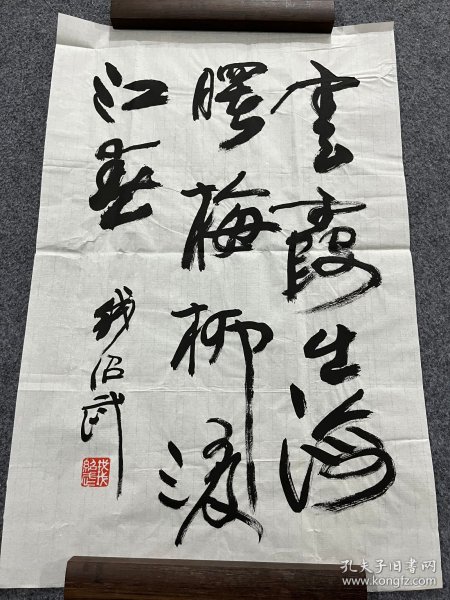 雲霞生海
曙梅柳渡
江春
钱绍武
钱绍武
孔夫子旧书网
www.kongfz.com